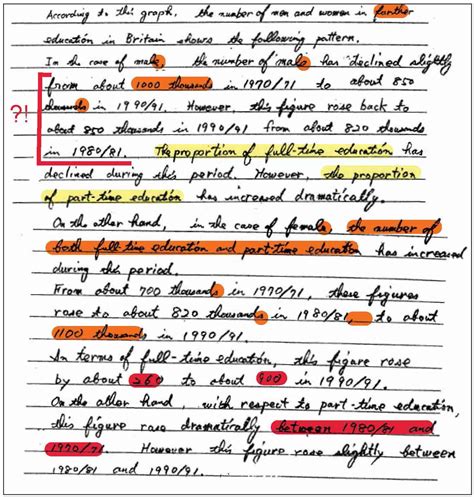 According to this graph, the number of men and women in farther
education in Britain shows the following pattern.
In the case of male, the number of male has declined slightly
from about 1000 thousands in 1970/71 to about 850
thousands in 1990/91. However, this figure rose back to
about 850 thousands in 1990/91 from about 820 thousands
in 1980/81. The proportion of full-time education has
declined during this period. However, the proportion
of part-time education has increased dramatically.
On the other hand, in the case of female, the number of
both full-time education and part-time education has increased
during this period.
From about 700 thousands in 1970/71, these figures
rose to about 820 thousands in 1980/81, to about
1100 thousands in 1990/91.
In terms of full-time education, this figure rose
by about 260 to about 900 in 1990/91.
On the other hand, with respect to part-time education,
this figure rose dramatically between 1980/81 and
1970/71. However this figure rose slightly between
1980/81 and 1990/91.
?!